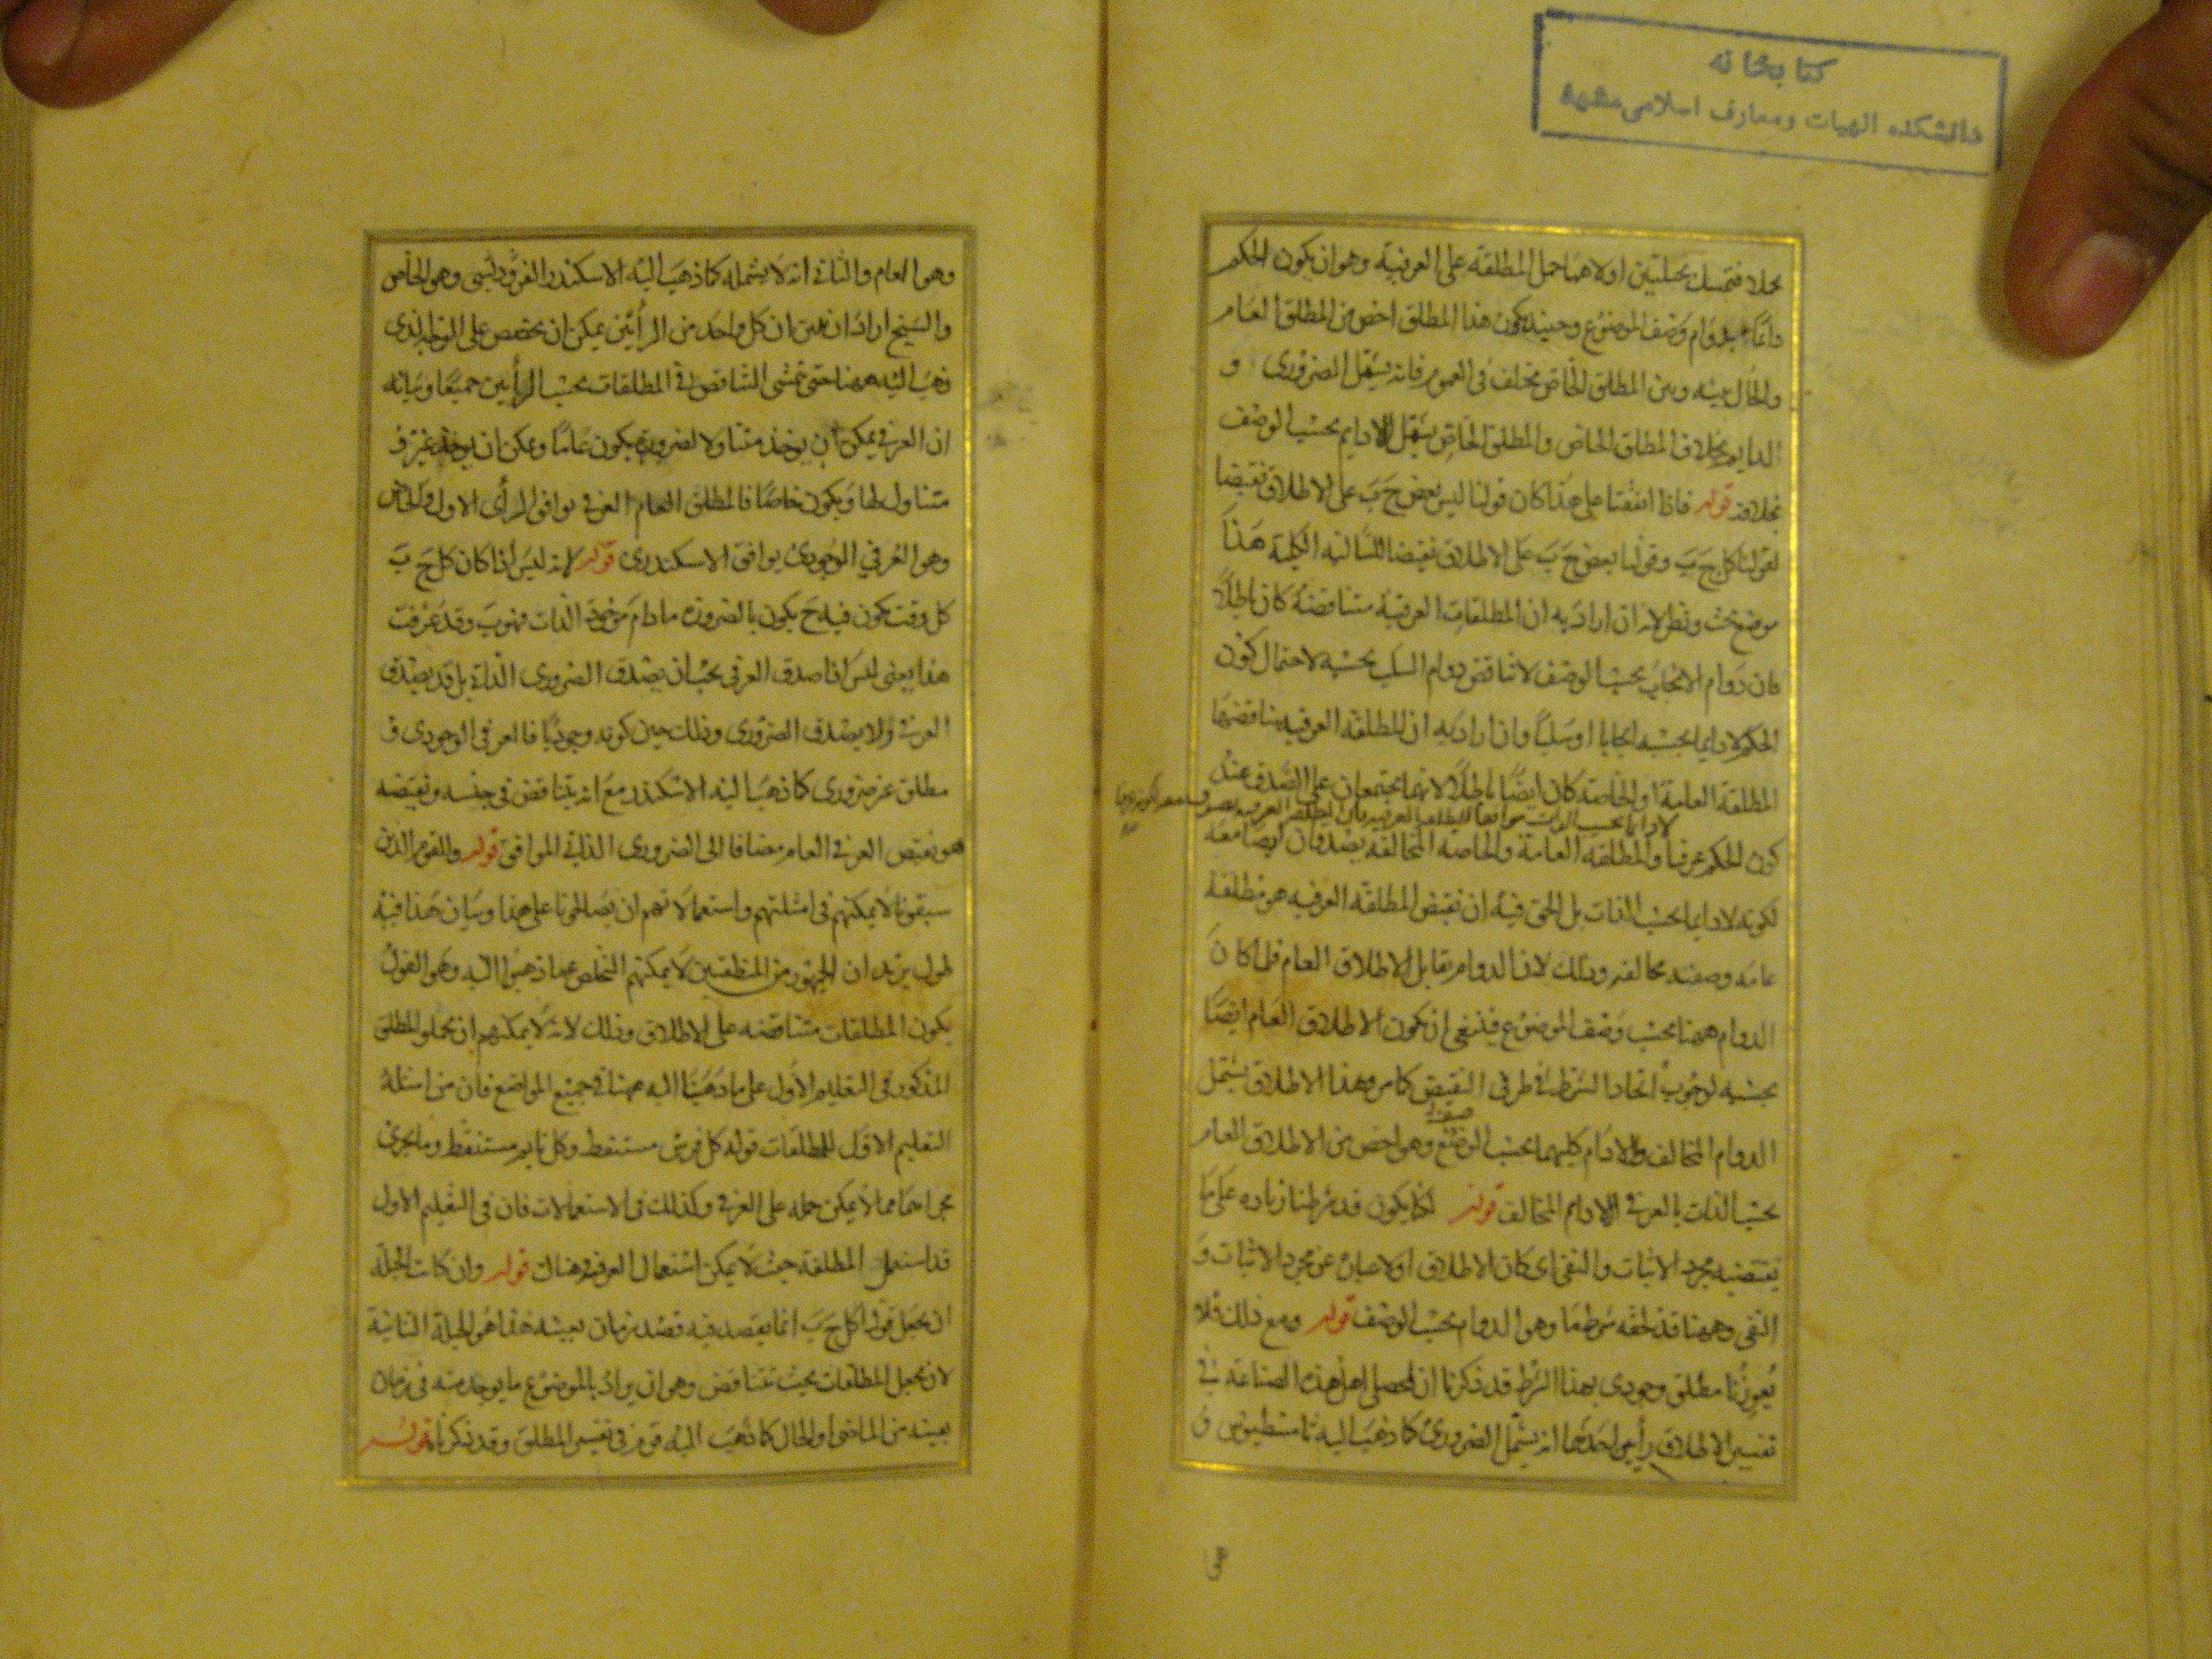 كتابخانه
دانشكده الهيات ومعارف اسلامى مشهد
محلا فتمسك بحيلتين اولاهما حمل المطلقة على العرفية وهو ان يكون الحكم
دائما بدوام وصف الموضوع وحينئذ يكون هذا المطلق اخص من المطلق العام
والحال بينه وبين المطلق الخاص مختلف فى العموم فانه يشمل الضرورى و
الدايم بخلاف المطلق الخاص والمطلق الخاص يشمل اللادايم بحسب الوصف
بخلافه قوله فاذا اتفقنا على هذا كان قولنا ليس بعض ج ب على الاطلاق نقيضا
لقولنا كل ج ب وقولنا بعض ج ب على الاطلاق نقيضا للسالبة الكلية هذا
موضع بحث ونظر لانه ان اراد به ان المطلقات العرفية متناقضة كان باطلا
فان دوام الايجاب بحسب الوصف لا يناقض دوام السلب بحسبه لاحتمال كون
الحكم لا دايما بحسبه ايجابا او سلبا وان اراد به ان المطلقة العرفية يناقضها
المطلقة العامة او الخاصة كان ايضا باطلا لانهما يجتمعان على الصدق عند
لا دايما بحسب الذات
كون الحكم عرفيا والمطلقة العامة والخاصة المخالفة يصدقان ايضا معه
لكونه لا دايما بحسب الذات بل الحق فيه ان نقيض المطلقة العرفيه هى مطلقة
عامه وصفية مخالفة وذلك لان الدوام يقابل الاطلاق العام فلما كان
الدوام ههنا بحسب وصف الموضوع فينبغى ان يكون الاطلاق العام ايضا
بحسبه لوجوب اتحاد الشرط فى طرفى النقيض كما مر وهذا الاطلاق يشمل
الدوام المخالف واللادوام كليهما بحسب الوضع وهو اخص من الاطلاق العام
بحسب الذات بالعرفى اللادايم المخالف قوله لكنا يكون قد شرطنا زياده على ما
يقتضيه مجرد الاثبات والنفى اى كان الاطلاق اولا عبارة عن مجرد الاثبات و
النفى وههنا قد لحقه شرط ما وهو الدوام بحسب الوصف قوله ومع ذلك فلا
يعوزنا مطلق وجودى بهذا الشرط قد ذكرنا ان لمحصلى اهل هذه الصناعة فى
تفسير الاطلاق رأيين احدهما انه يشمل الضرورى كما ذهب اليه ثامسطيوس
وهو العام والثانى انه لا يشمله كما ذهب اليه الاسكندر الفرودوسى وهو الخاص
والشيخ اراد ان يبين ان كل واحد من الرأيين يمكن ان يخصص على الوجه الذى
ذهب اليه ههنا حتى يتمشى التناقض فى المطلقات بحسب الرأيين جميعا وبيانه
ان العرفى يمكن ان يوخذ متناولا للضرورة فيكون عاما ويمكن ان يوخذ غير
متناول لها ويكون خاصا فالمطلق العام العرفى يوافق الرأى الاول والخاص
وهو العرفى الوجودى يوافق الاسكندرى قوله لانه ليس اذا كان كل ج ب
كل وقت يكون فيه ج يكون بالضرورة ما دام موجود الذات فهو ب وقد عرفت
هذا يعنى ليس اذا صدق العرفى يجب ان يصدق الضرورى الذاتى بل قد يصدق
العرفى ولا يصدق الضرورى وذلك حين كونه وجوديا فالعرفى الوجودى
مطلق غير ضرورى كما ذهب اليه الاسكندر مع انه يتناقض فى جنسه ونقيضه
هو نقيض العرفى العام مضافا الى الضرورى الذاتى الموافق قوله والقوم الذين
سبقونا لا يمكنهم فى امثلتهم واستعمالاتهم ان يصالحونا على هذا وبيان هذا فيه
طول يريد ان الجمهور من المنطقيين لا يمكنهم التخلص عما ذهبوا اليه وهو القول
بكون المطلقات متناقضه على الاطلاق وذلك لانه لا يمكنهم ان يحملوا المطلق
المذكور فى التعليم الاول على ما ذهبنا اليه ههنا فى جميع المواضع فان من امثلة
التعليم الاول للمطلقات قوله كل فرس مستيقظ وكل نايم مستيقظ وما يجرى
مجراهما مما لا يمكن حمله على العرفى وكذلك فى الاستعمالات فان فى التعليم الاول
قد استعمل المطلقة حيث لا يمكن استعمال العرفى هناك قوله وان كانت الحيلة
ان يجعل قولنا كل ج ب انما يقصد فيه قصد زمان بعينه هذا هو الحيلة الثانية
لان يجعل المطلقات بحيث تتناقض وهو ان يراد بالموضوع ما يوجد منه فى زمان
بعينه من الماضى او الحال كما ذهب اليه قوم فى تفسير المطلق وقد ذكرناه قوله